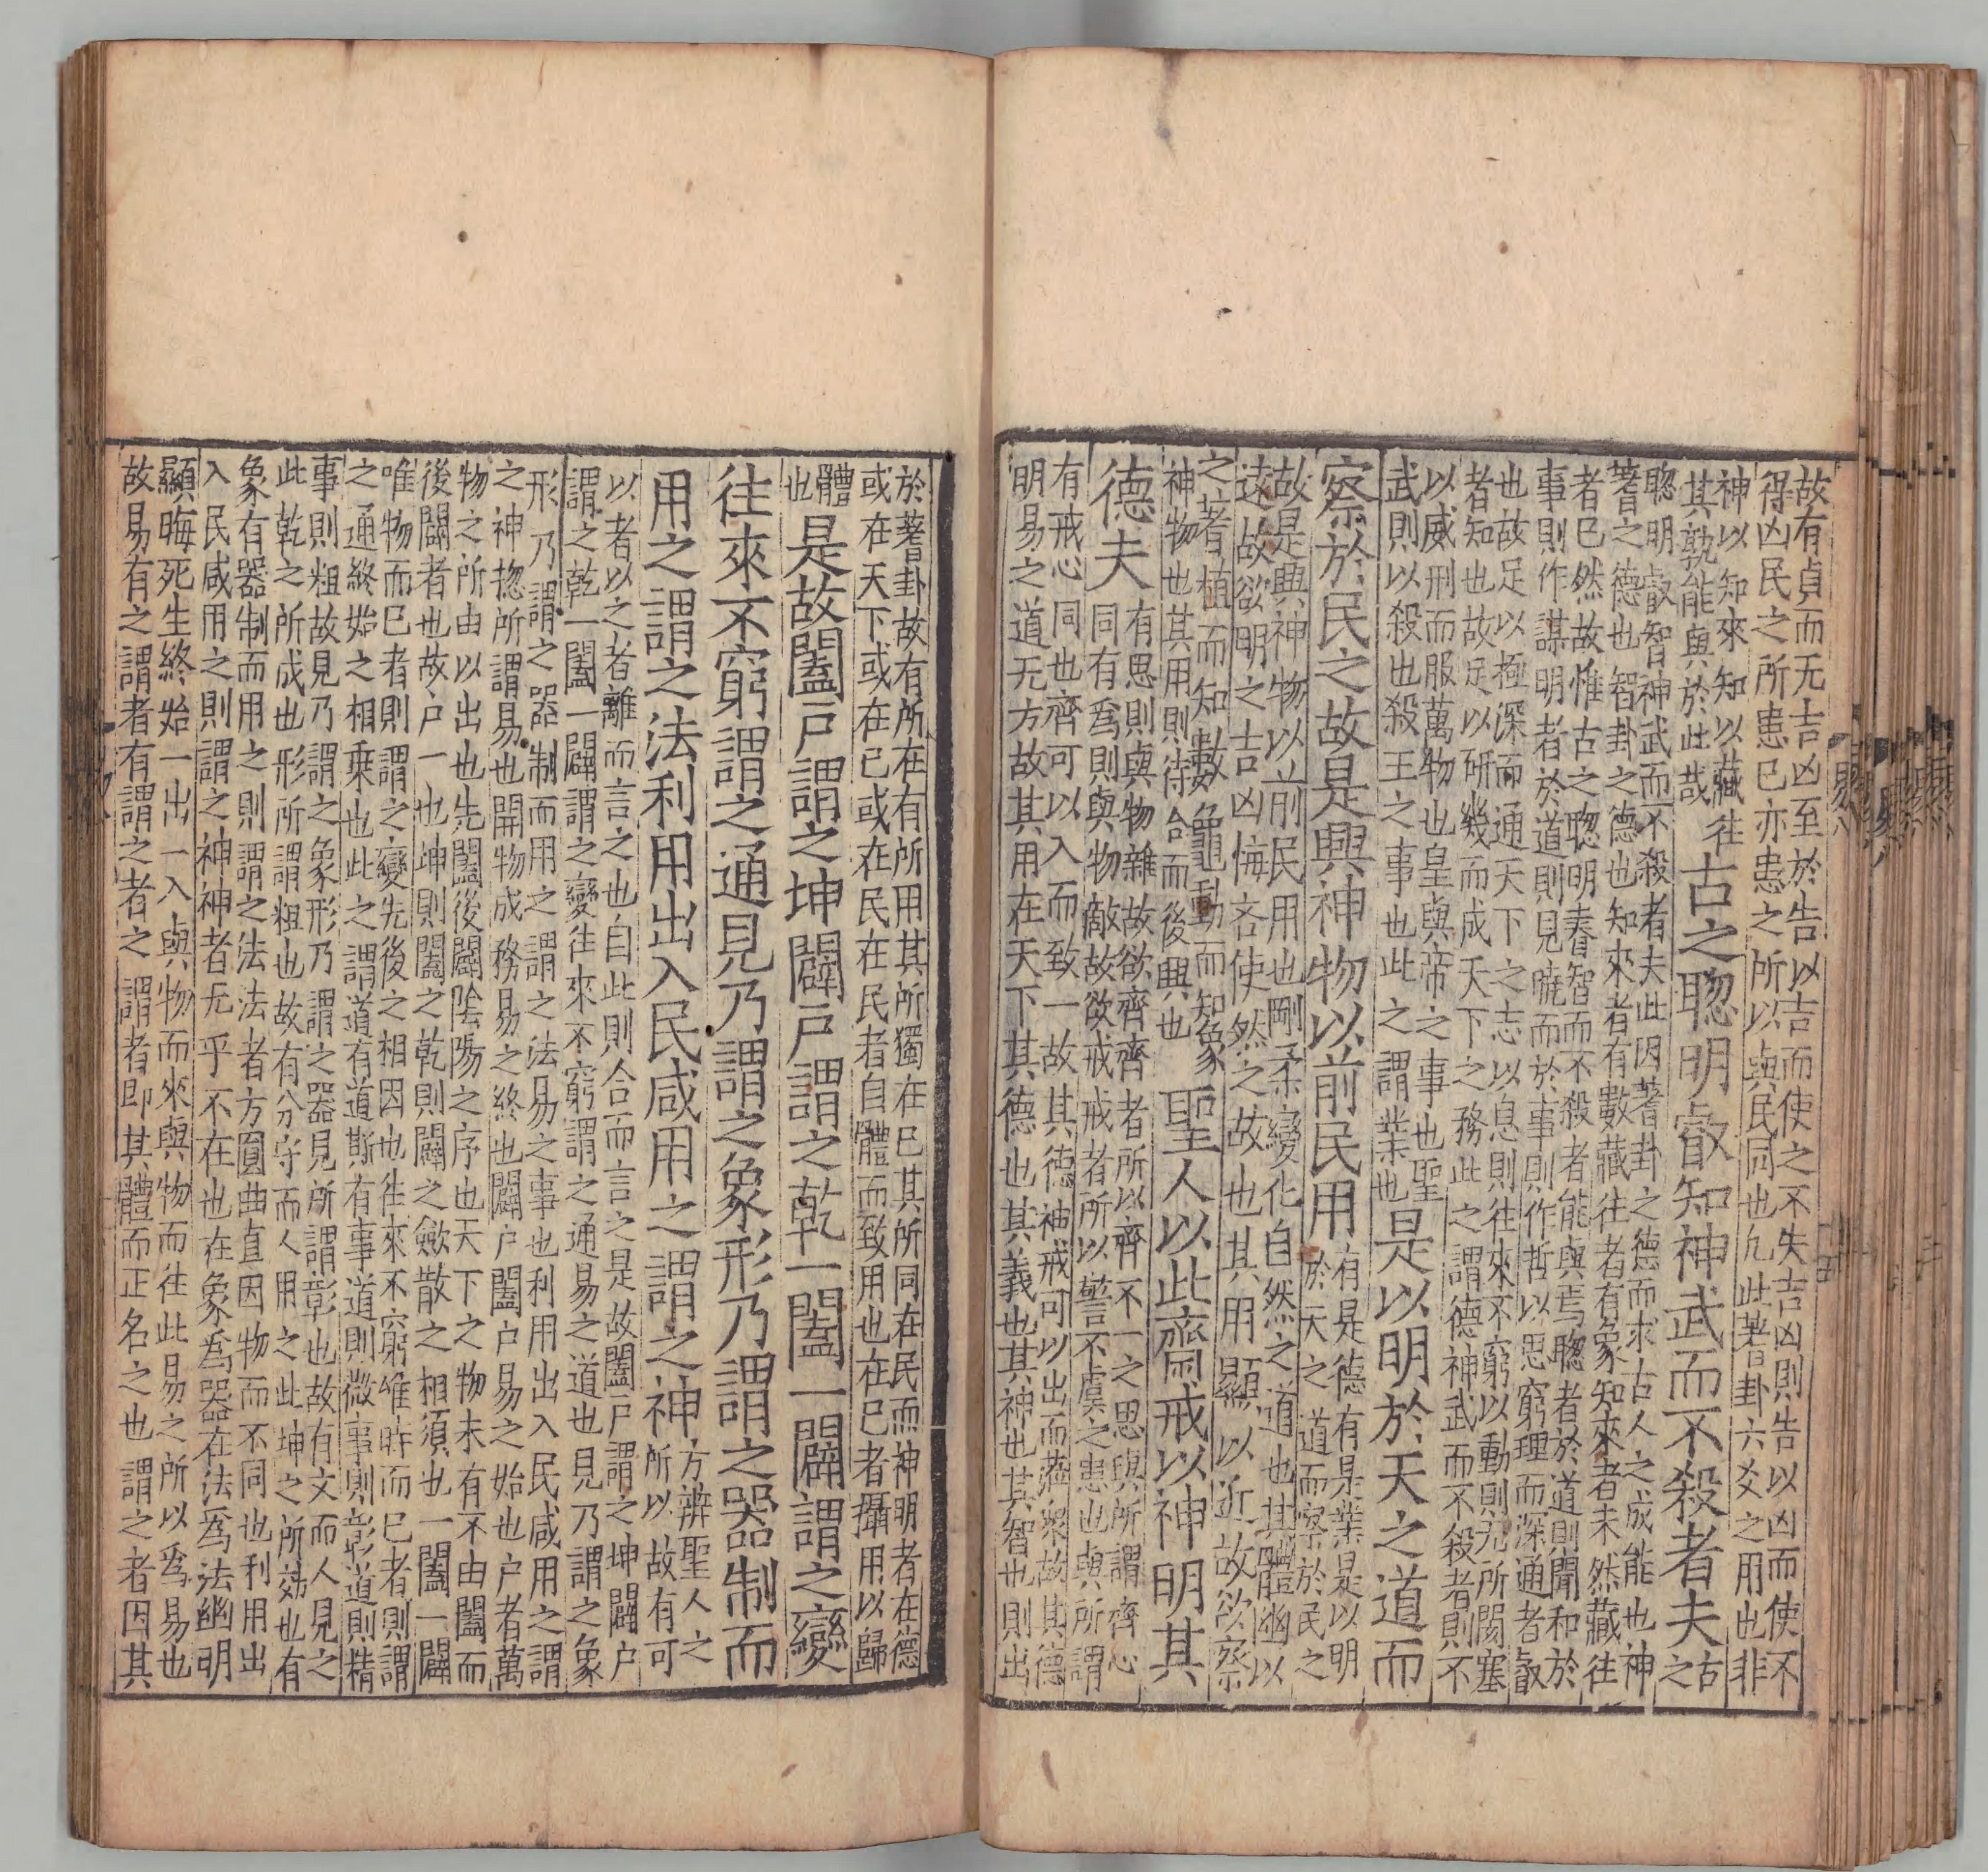 故有貞而无吉凶至於告以吉而使之不失吉凶則告以凶而使不
得凶民之所患已亦患之所以與民同也凡此蓍卦六爻之用也非
神以知來知以藏往
其孰能與於此哉
古之聰明叡知神武而不殺者夫
古之
聰明叡智神武而不殺者夫此因蓍卦之德而求古人之成能也神
蓍之德也智卦之德也知來者有數藏往者有象知來者未然藏往
者已然故惟古之聰明睿智而不殺者能與焉聰者於道則聞和於
事則作謀明者於道則見曉而於事則作哲以思窮理而深通者叡
也故足以極深而通天下之志以息則往來不窮以動則无所閡塞
者知也故足以研幾而成天下之務此之謂德神武而不殺者則不
以威刑而服萬物也皇與帝之事也聖
武則以殺也殺王之事也此之謂業也
是以明於天之道而
察於民之故是興神物以前民用
有是德有是業是以明
於天之道而察於民之
故是興神物以前民用也剛柔變化自然之道也其體幽以
遠故欲明之吉凶悔吝使然之故也其用顯以近故欲察
之蓍植而知數龜動而知象
神物也其用則待合而後興也
聖人以此齋戒以神明其
德夫
有思則與物雜故欲齊齊者所以齊不一之思與所謂齊心
同有爲則與物敵故欲戒戒者所以警不虞之患也與所謂
有戒心同也齊可以入而致一故其德神戒可以出而蒞衆故其德
明易之道无方故其用在天下其德也其義也其神也其智也則出
於蓍卦故有所在有所用其所獨在已其所同在民而神明者在德
或在天下或在已或在民在民者自體而致用也在已者攝用以歸
體
也
是故闔戸謂之坤闢戸謂之乾一闔一闢謂之變
往來不窮謂之通見乃謂之象形乃謂之器制而
用之謂之法利用出入民咸用之謂之神
方辨聖人之
所以故有可
以者以之者離而言之也自此則合而言之是故闔戸謂之坤闢戸
謂之乾一闔一闢謂之變往來不窮謂之通易之道也見乃謂之象
形乃謂之器制而用之謂之法易之事也利用出入民咸用之謂
之神揔所謂易也開物成務易之終也闢户闔户易之始也户者萬
物之所由以出也先闔後闢陰陽之序也天下之物未有不由闔而
後闢者也故户一也坤則闔之乾則闢之歛散之相須也一闔一闢
唯物而已者則謂之變先後之相因也往來不窮唯時而已者則謂
之通終始之相乗也此之謂道有道斯有事道則微事則彰道則精
事則粗故見乃謂之象形乃謂之器見所謂彰也故有文而人見之
此乾之所成也形所謂粗也故有分守而人用之此坤之所效也有
象有器制而用之則謂之法法者方圓曲直因物而不同也利用出
入民咸用之則謂之神神者无乎不在也在象爲器在法爲法幽明
顯晦死生終始一出一入與物而來與物而往此易之所以爲易也
故易有之謂者有謂之者之謂者即其體而正名之也謂之者因其